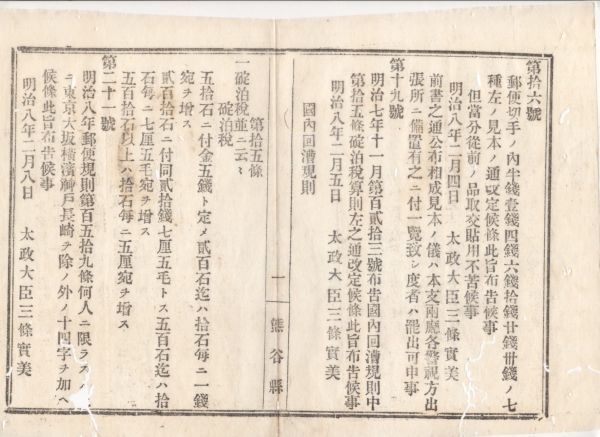 第拾六號
郵便切手ノ內半錢壹錢四錢六錢拾錢廿錢卅錢ノ七
種左ノ見本ノ通改定候條此旨布吿候事
但當分從前ノ品取交貼用不苦候事
明治八年二月四日　太政大臣三條實美
前書之通公布相成見本ノ儀ハ本支兩廳各警視方出
張所ニ備置有之ニ付一覽致シ度者ハ罷出可申事
第十九號
明治七年十一月第百貳拾三號布吿國內回漕規則中
第拾五條碇泊稅算則左之通改定候條此旨布吿候事
明治八年二月五日　太政大臣三條實美
國內回漕規則
一　熊谷縣
第拾五條
碇泊稅
一碇泊稅並ニ云々
五拾石ニ付金五錢ト定メ貳百石迄ハ拾石每ニ一錢
宛ヲ增ス
貳百拾石ニ付同貳拾錢七厘五毛トス五百石迄ハ拾
石每ニ七厘五毛宛ヲ增ス
五百拾石以上ハ拾石每ニ五厘宛ヲ增ス
第二十一號
明治八年郵便規則第百五拾九條何人ニ限ラス
ニ東京大坂橫濱神戶長崎ヲ除ノ外ノ十四字ヲ加ヘ
候條此旨布吿候事
明治八年二月八日　太政大臣三條實美